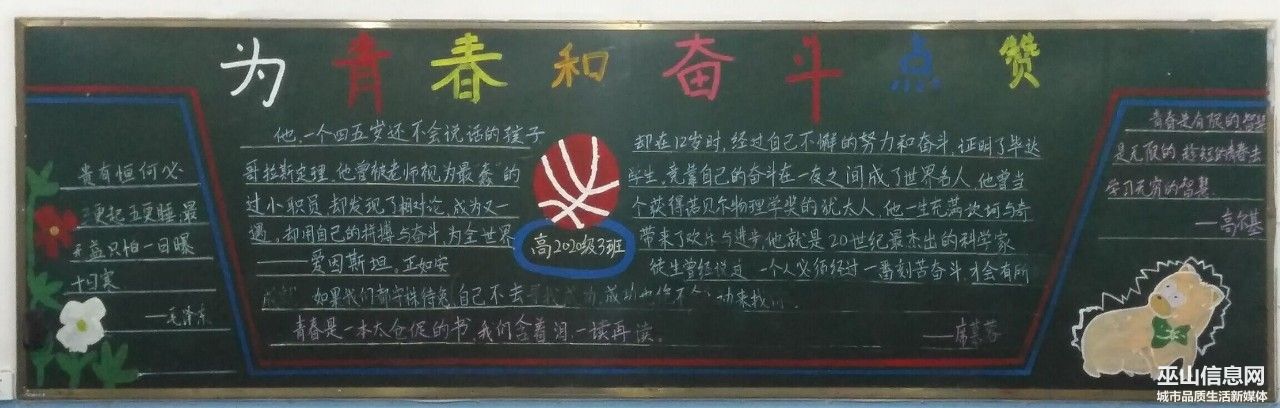 为青春和奋斗点赞
贵有恒何必
三更起五更睡，最
无益只怕一日曝
十日寒
——毛泽东
他，一个四五岁还不会说话的孩子
却在12岁时，经过自己不懈的努力和奋斗，证明了毕达
哥拉斯定理，他曾被老师视为最"蠢"的
学生，竟靠自己的奋斗在一夜之间成了世界名人，他曾当
过小职员，却发现了相对论，成为又一
个获得诺贝尔物理学奖的犹太人，他一生充满坎坷与奇
遇，却用自己的拼搏与奋斗，为全世界
带来了欢乐与进步，他就是20世纪最杰出的科学家
——爱因斯坦。正如安
徒生曾经说过，一个人必须经过一番刻苦奋斗，才会有所
成就，如果我们都守株待兔，自己不去寻找成功，成功也
青春是一本太仓促的书，我们含着泪，一读再读。
——席慕蓉
高2020级3班
青春是有限的，智慧
是无限的，趁短的青春去
学习无穷的智慧
——高尔基
巫山信息网
城市品质生活新媒体